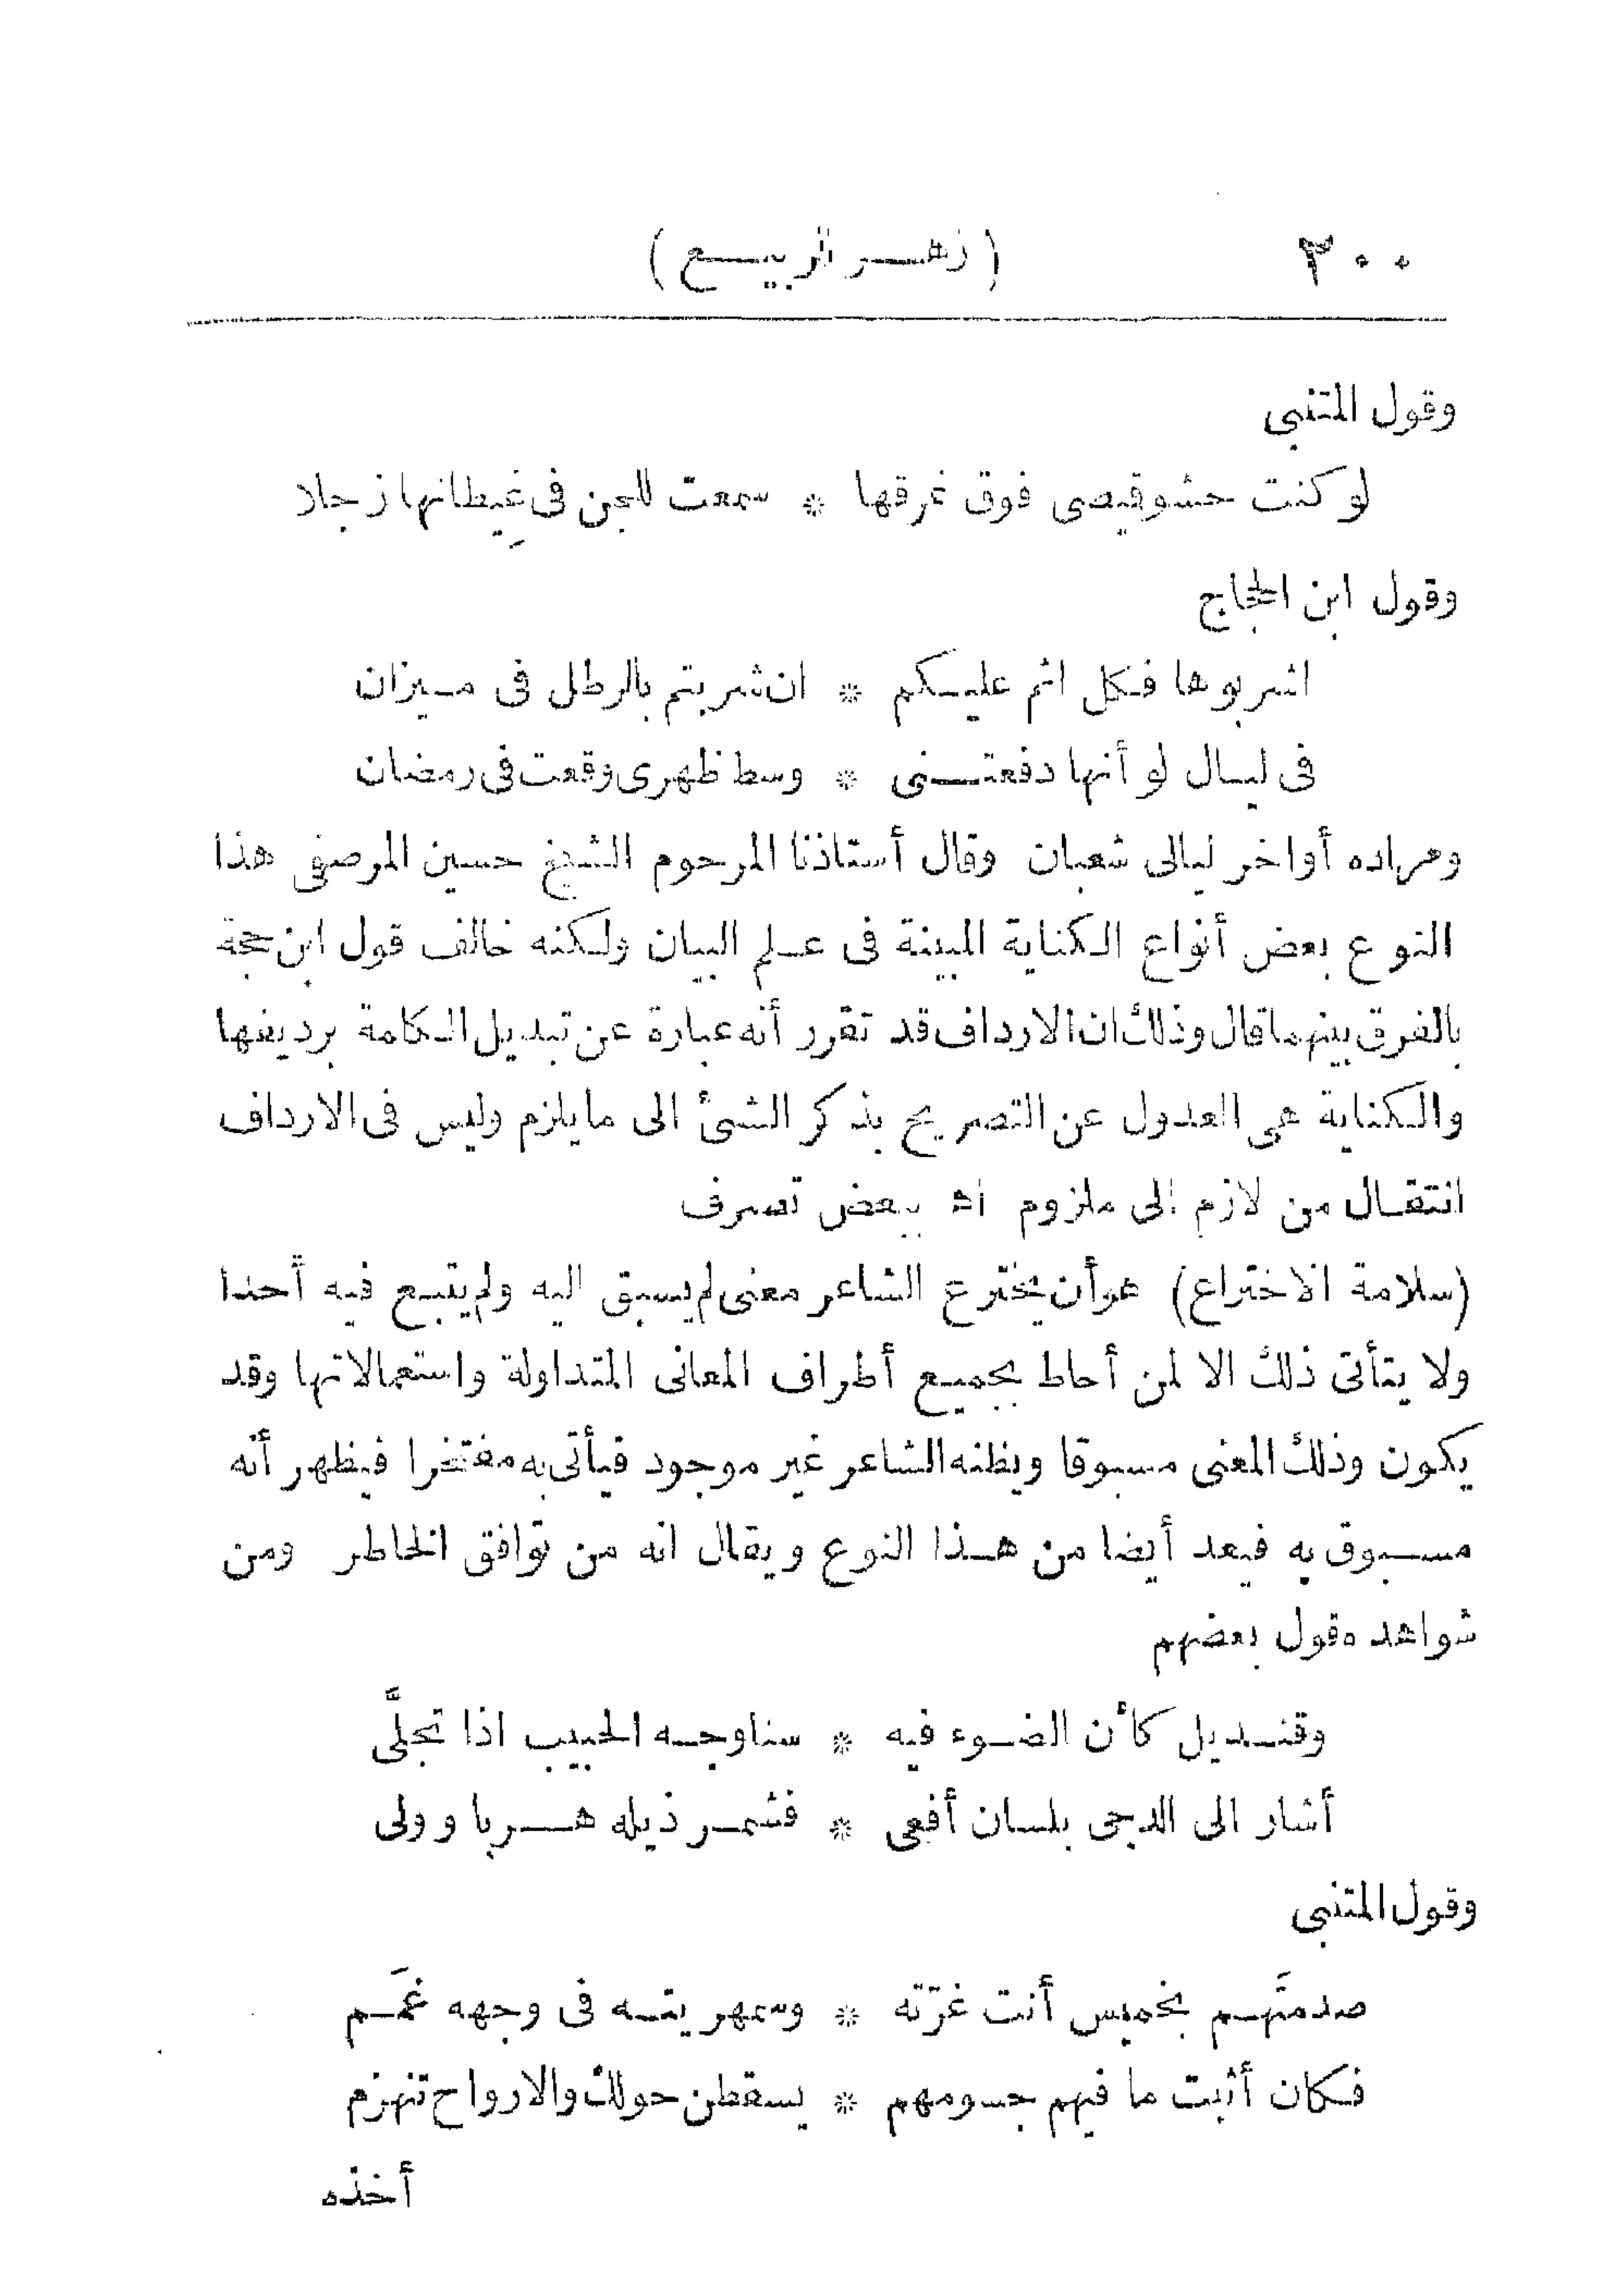 ٢٠٠ (زهر الربيع)
وقول المتنبى
لو كنت حشو قيصى فوق نمرقها * سمعت للجن فى غيطانها زجلا
وقول ابن الحجاج
اشربوها فكل اثم عليكم * ان شربتم بالرطل فى ميزان
فى ليال لو أنها دفعتنى * وسط ظهرى وقعت فى رمضان
ومراده أواخر ليالى شعبان وقال أستاذنا المرحوم الشيخ حسين المرصفى هذا
النوع بعض أنواع الكناية المبينة فى علم البيان ولكنه خالف قول ابن حجة
بالفرق بينهما قال وذلك ان الارداف قد تقرر أنه عبارة عن تبديل الكلمة برديفها
والكناية هى العدول عن التصريح بذكر الشئ الى ما يلزم وليس فى الارداف
انتقال من لازم الى ملزوم اه ببعض تصرف
(سلامة الاختراع) هو أن يخترع الشاعر معنى لم يسبق اليه ولم يتبع فيه أحدا
ولا يتأتى ذلك الا لمن أحاط بجميع أطراف المعانى المتداولة واستعمالاتها وقد
يكون وذلك المعنى مسبوقا ويظنه الشاعر غير موجود فيأتى به مفتخرا فيظهر أنه
مسبوق به فيعد أيضا من هذا النوع ويقال انه من توافق الخاطر ومن
شواهده قول بعضهم
وقنديل كأن الضوء فيه * سنا وجه الحبيب اذا تجلَّى
أشار الى الدجى بلسان أفعى * فشمر ذيله هربا وولى
وقول المتنبى
صدمتَهم بخميس أنت غرّته * وسمهريته فى وجهه غمَم
فكان أثبت ما فيهم جسومهم * يسقطن حولك والارواح تنهزم
أخذه